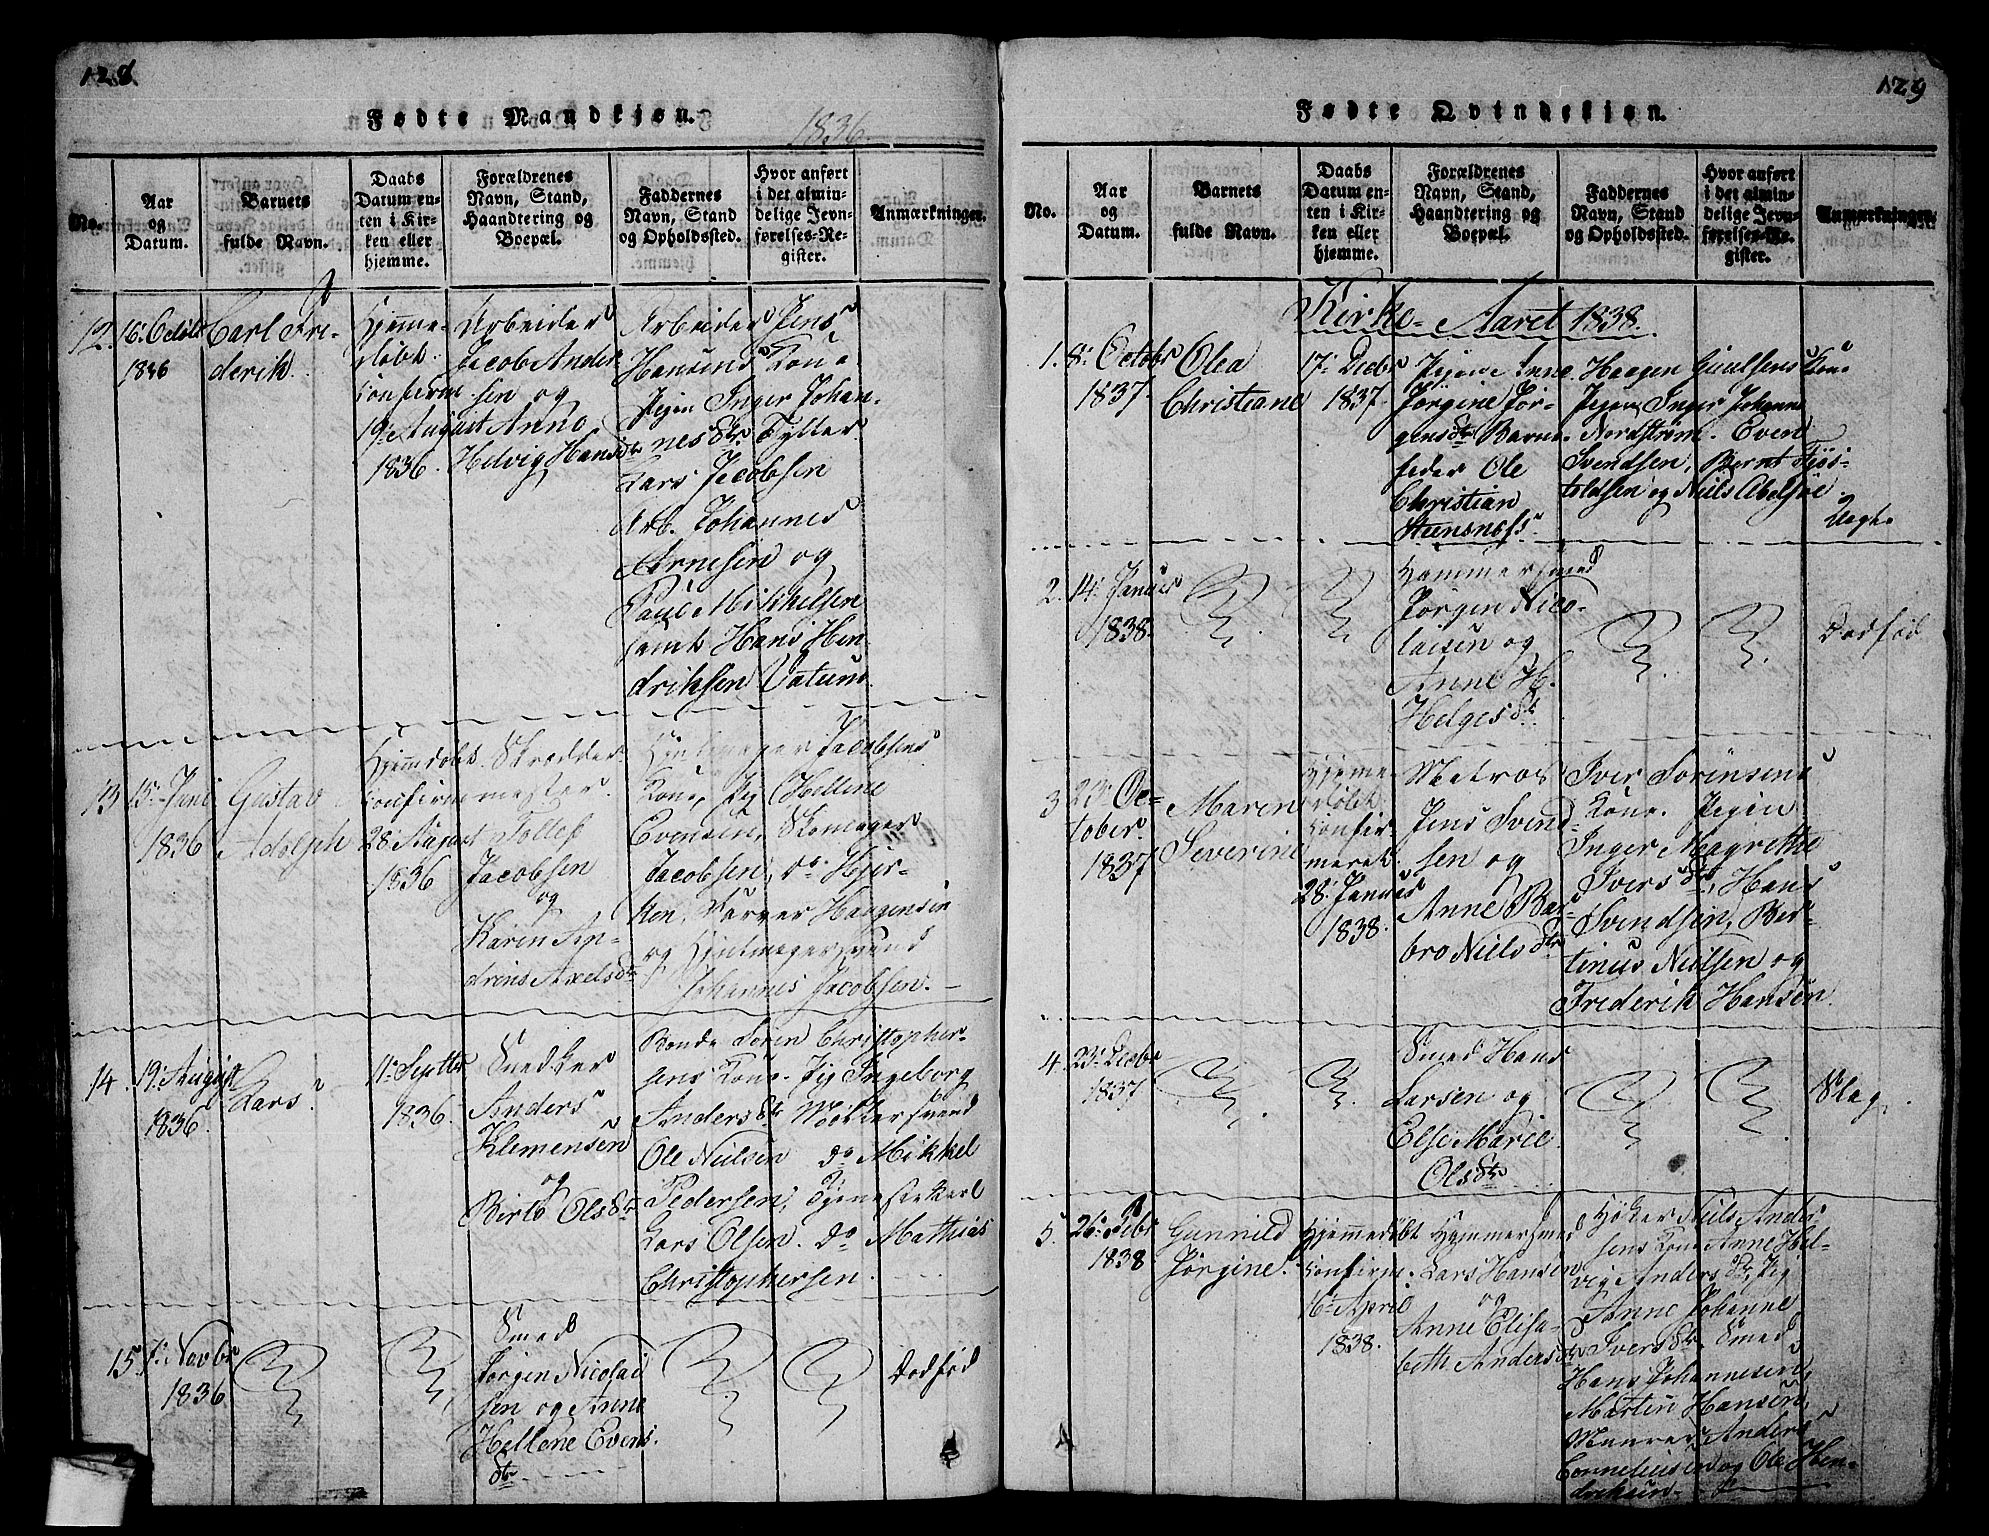 128.
Fødte Mandkjøn.
1836.
No.
Aar og Datum.
Barnets fulde Navn.
Daabs Datum enten i Kirken eller hjemme.
Forældrenes Navn, Stand, Haandtering og Boepæl.
Faddernes Navn, Stand og Opholdssted.
Hvor anført i det almindelige Jevnførelses-Register.
Anmærkninger.
12.
16. Octob
1836
Carl Fre-
derik.
Hjemme-
døbt
Confirm
19. August
1836.
Arbeider
Jacob Ander
sen og
Anne
Helvig Hansdtr
Arbeider Jens
Hansens Kone
Pigen Inger Johan-
nesdtr Tytter
Lars Jacobsen
Arb. Johannes
Arnesen og
Paul Mikkelsen
samt Hans Hen-
driksen Vatum.
13
15. Juni
1836
Gustav
Adolph
Hjemdøbt
Confirm
28. August
1836
Skrædder
mester
Tollef
Jacobsen
og
Karen An-
drine Axelsdtr
Jacobsens
Kone, Pig Hellene
Evensen, Skomager
Jacobsen, do Hjer-
ken, Farver Haagensen
og
Johannes Jacobsen.
14.
19. August
1836.
Lars
11. Septbr
1836.
Snedker
Anders
Klemensen
og
Birte Olsdtr
Bonde Søren Christopher-
sens Kone. Pig Ingeborg
Andersdtr
Ole Nielsen do Mikkel
Pedersen, Tjenestekarl
Lars Olsen. do Mathias
Christophersen.
15
1. Novbr
1836
Smed
Jørgen Nicolai
sen og Anne
Hellene Evens
dtr
Dødfød
129
Fødte Qvindekjøn.
No.
Aar og Datum.
Barnets fulde Navn.
Daabs Datum enten i Kirken eller hjemme.
Forældrenes Navn, Stand, Haandtering og Boepæl.
Faddernes Navn, Stand og Opholdssted.
Hvor anført i det almindelige Jevnførelses-Register.
Anmærkninger.
Kirke-Aaret 1838.
1.
8. Octobr
1837.
Olea
Christiane
17. Decbr
1837.
Pigen Anne
Jørgine Jør-
gensdtr Barne-
fader Ole
Christian
Steensnæss.
Haagen Gundersens Kone
Pigen Inger Johanne
Nordstrøm. Even
Svendsen, Bernt
toldsen og Niels Abelsøe.
Uægte
2.
14. Januar
1838.
Hammersmed
Jørgen Nico-
laisen og
Anne H.
Helgesdtr
Dødfød
3
23. Oc-
tober
1837
Maren
Severine
Hjemme-
døbt
Confir-
meret
28. Januar
1838.
Matros
Jens Svend-
sen og
Anne Bar-
bro Nielsdtr
Iver Sørensens
Kone. Pigen
Inger Magrethe
Iversdtr, Hans
Svendsen, Ber-
tinus Nielsen og
Frederik Hansen.
4.
23. Decbr
1837
Smed Hans
Larsen og
Else Marie
Olsdtr
5
26. Febr
1838
Gunnild
Jørgine
Hjemmedøbt
Confirm.
16. April
1838.
Hammersmed
Lars Hansen
og
Anne Elisa-
beth Andersdtr
Høker Niels Ander-
sens Kone Anne Hel-
vig Andersdtr, Pig
Anne Johanne
Iversdtr. Smed
Hans Johannesen
Martin Hansen,
Anders
Corneliusen og Ole Hen-
driksen.